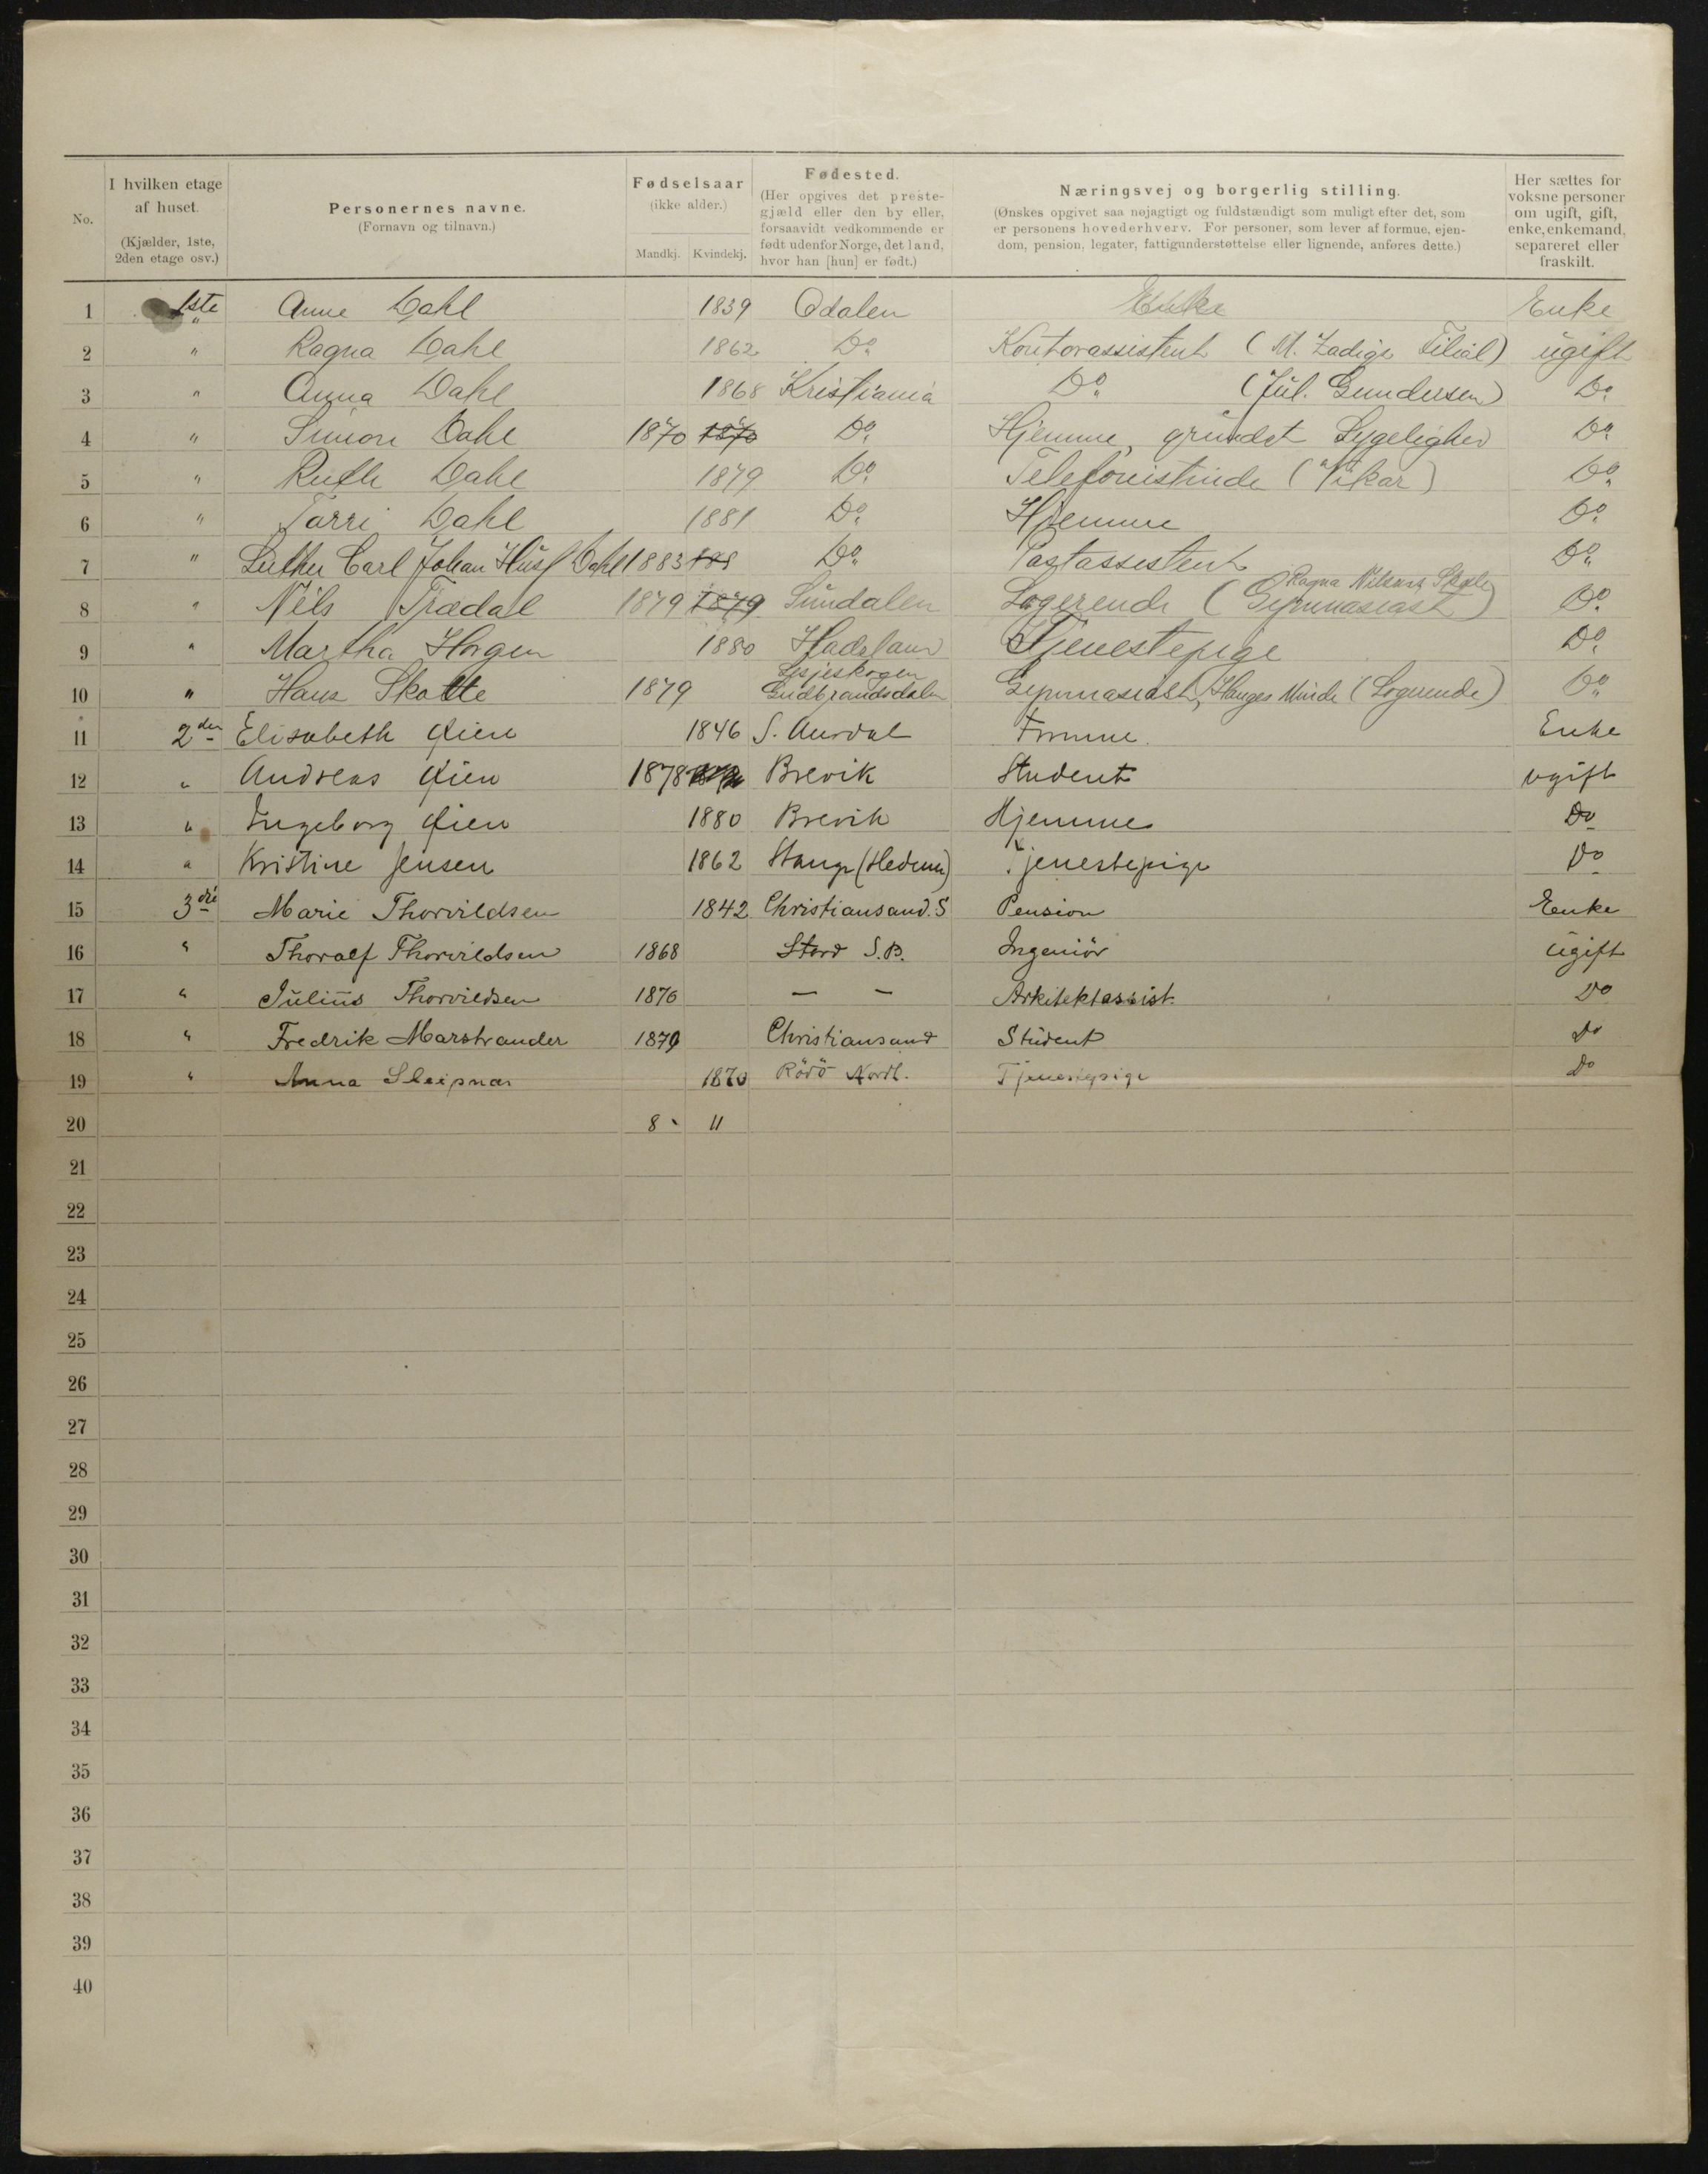 No.
I hvilken etage af huset.
(Kjælder, 1ste, 2den etage osv.)
Personernes navne.
(Fornavn og tilnavn.)
Fødselsaar
(ikke alder.)
Mandkj. Kvindekj.
Fødested.
(Her opgives det prestegjæld eller den by eller, forsaavidt vedkommende er født udenfor Norge, det land, hvor han [hun] er født.)
Næringsvej og borgerlig stilling.
(Ønskes opgivet saa nøjagtigt og fuldstændigt som muligt efter det, som er personens hovederhverv. For personer, som lever af formue, ejendom, pension, legater, fattigunderstøttelse eller lignende, anføres dette.)
Her sættes for voksne personer om ugift, gift, enke, enkemand, separeret eller fraskilt.
1 1ste Anne Dahl 1839 Odalen Enke Enke
2 " Ragna Dahl 1862 Do Kontorassistent (M. Zadigs Filial) ugift
3 " Anna Dahl 1868 Kristiania Do (Jul. Gundersen) Do
4 " Simon Dahl 1870 1870 Do Hjemme, grundet Sygelighed Do
5 " Ruth Dahl 1879 Do Telefonistinde ("Vikar) Do
6 " Tarri Dahl 1881 Do Hjemme Do
7 " Luther Carl Johan Dahl 1883 188 Do Postassistent Do
8 " Nils Trædal 1879 1879 Sundalen Logerende (Gymnasiast Ragna Nilsens Skole) Do
9 " Martha Horgen 1880 Hadeland Tjenestepige Do
10 " Hans Skotte 1879 Lesjeskogen Gudbrandsdalen Gymnasiast, Hauges Minde (Logerende) Do
11 2den Elisabeth Øien 1846 S. Aurdal Formue Enke
12 " Andreas Øien 1878 Brevik Student ugift
13 " Ingeborg Øien 1880 Brevik Hjemme Do
14 " Kristine Jensen 1862 Stange (Hedem) Tjenestepige Do
15 3die Marie Thorvildsen 1842 Christiansand. S Pension Enke
16 " Thoralf Thorvildsen 1868 Stord S.B. Ingeniör ugift
17 " Julius Thorvildsen 1870 — — Arkitektassist. Do
18 " Fredrik Marstrander 1879 Christiansand Student Do
19 " Anna Sleipnæs 1870 Rödö Nordl. Tjenestepige Do
20 8 11
21
22
23
24
25
26
27
28
29
30
31
32
33
34
35
36
37
38
39
40